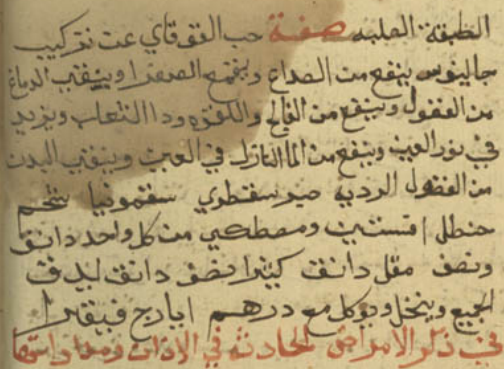 الطبقة الصلبه صفة حب القوقاي عن تركيب
جالينوس ينفع من الصداع ويقمع الصفرا وينقي الدماغ
من الفضول وينفع من الفالج واللقوه ودا الثعلب ويزيد
في نور العين وينفع من الما النازل في العين وينقي البدن
من الفضول الرديه صبر سقطري سقمونيا شحم
حنطل افسنتين ومصطكي من كل واحد دانق
ونصف مقل دانق كثيرا نصف دانق يدق
الجميع وينخل ويوكل مع درهم ايارج فيقرا
في ذكر الامراض الحادثه في الاذان ومداواتها